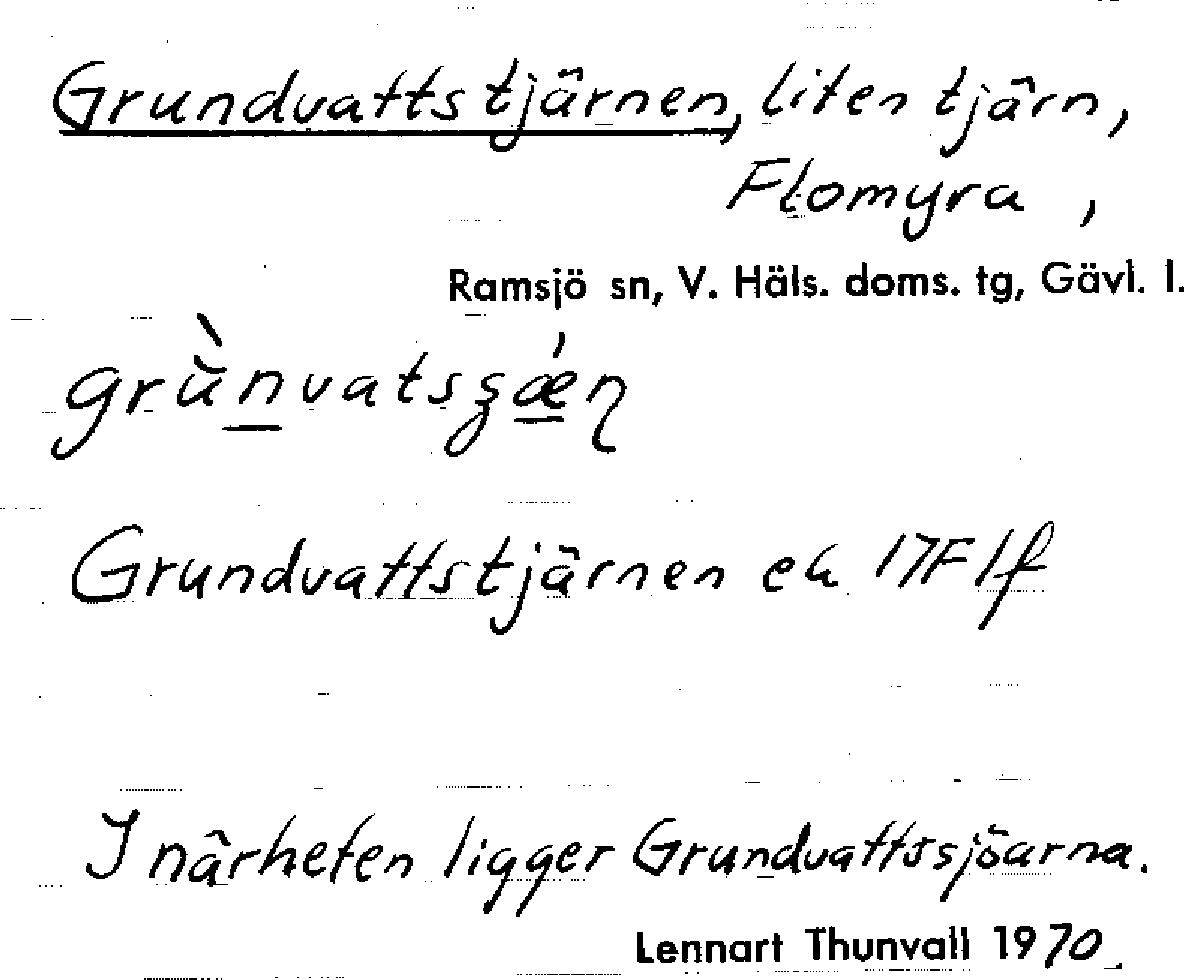 Grundvattstjärnen, liten tjärn,
Flomyra ,
Ramsjö sn, V. Häls. doms. tg, Gävl. l.
Grundvattstjärnen ek 17F 1f
I närheten ligger Grundvattssjöarna.
Lennart Thunvall 1970